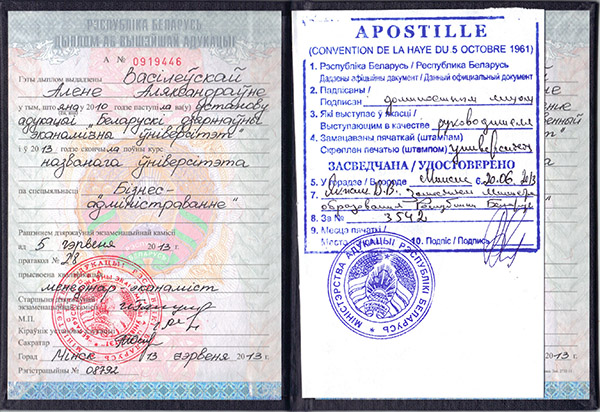 РЭСПУБЛІКА БЕЛАРУСЬ
ДЫПЛОМ АБ ВЫШЭЙШАЙ АДУКАЦЫІ
А № 0919446
Гэты дыплом выдадзены Васілеўскай
Алене Аляксандраўне
у тым, што яна у 2010 годзе паступіла ва(у) установу
адукацыі „Беларускі дзяржаўны
эканамічны ўніверсітэт"
і ў 2013 годзе скончыла поўны курс
названага ўніверсітэта
па спецыяльнасці „Бізнес-
адміністраванне"
Рашэннем дзяржаўнай экзаменацыйнай камісіі
ад 5 чэрвеня 2013 г.
пратакол № 28
прысвоена кваліфікацыя
менеджэр-эканаміст
Старшыня
экзаменацыйнай камісіі
М.П.
Кіраўнік установы адукацыі
Сакратар
Горад Мінск 13 чэрвеня 2013 г.
Рэгістрацыйны № 08792
APOSTILLE
(CONVENTION DE LA HAYE DU 5 OCTOBRE 1961)
1. Рэспубліка Беларусь / Республика Беларусь
Дадзены афіцыйны дакумент / Данный официальный документ
2. Падпісаны /
Подписан должностным лицом
3. Які выступае ў якасці /
Выступающим в качестве руководителя
4. Замацаваны пячаткай (штампам)
Скреплен печатью (штампом) университета
ЗАСВЕДЧАНА / УДОСТОВЕРЕНО
5. У горадзе / В городе Минске 6. 20.06.2013
7.
образования Республики Беларусь
8. За № 3542
9. Месца пячаткі /
Место 10. Подпіс / Подпись
* МІНІСТЭРСТВА АДУКАЦЫІ РЭСПУБЛІКІ БЕЛАРУСЬ